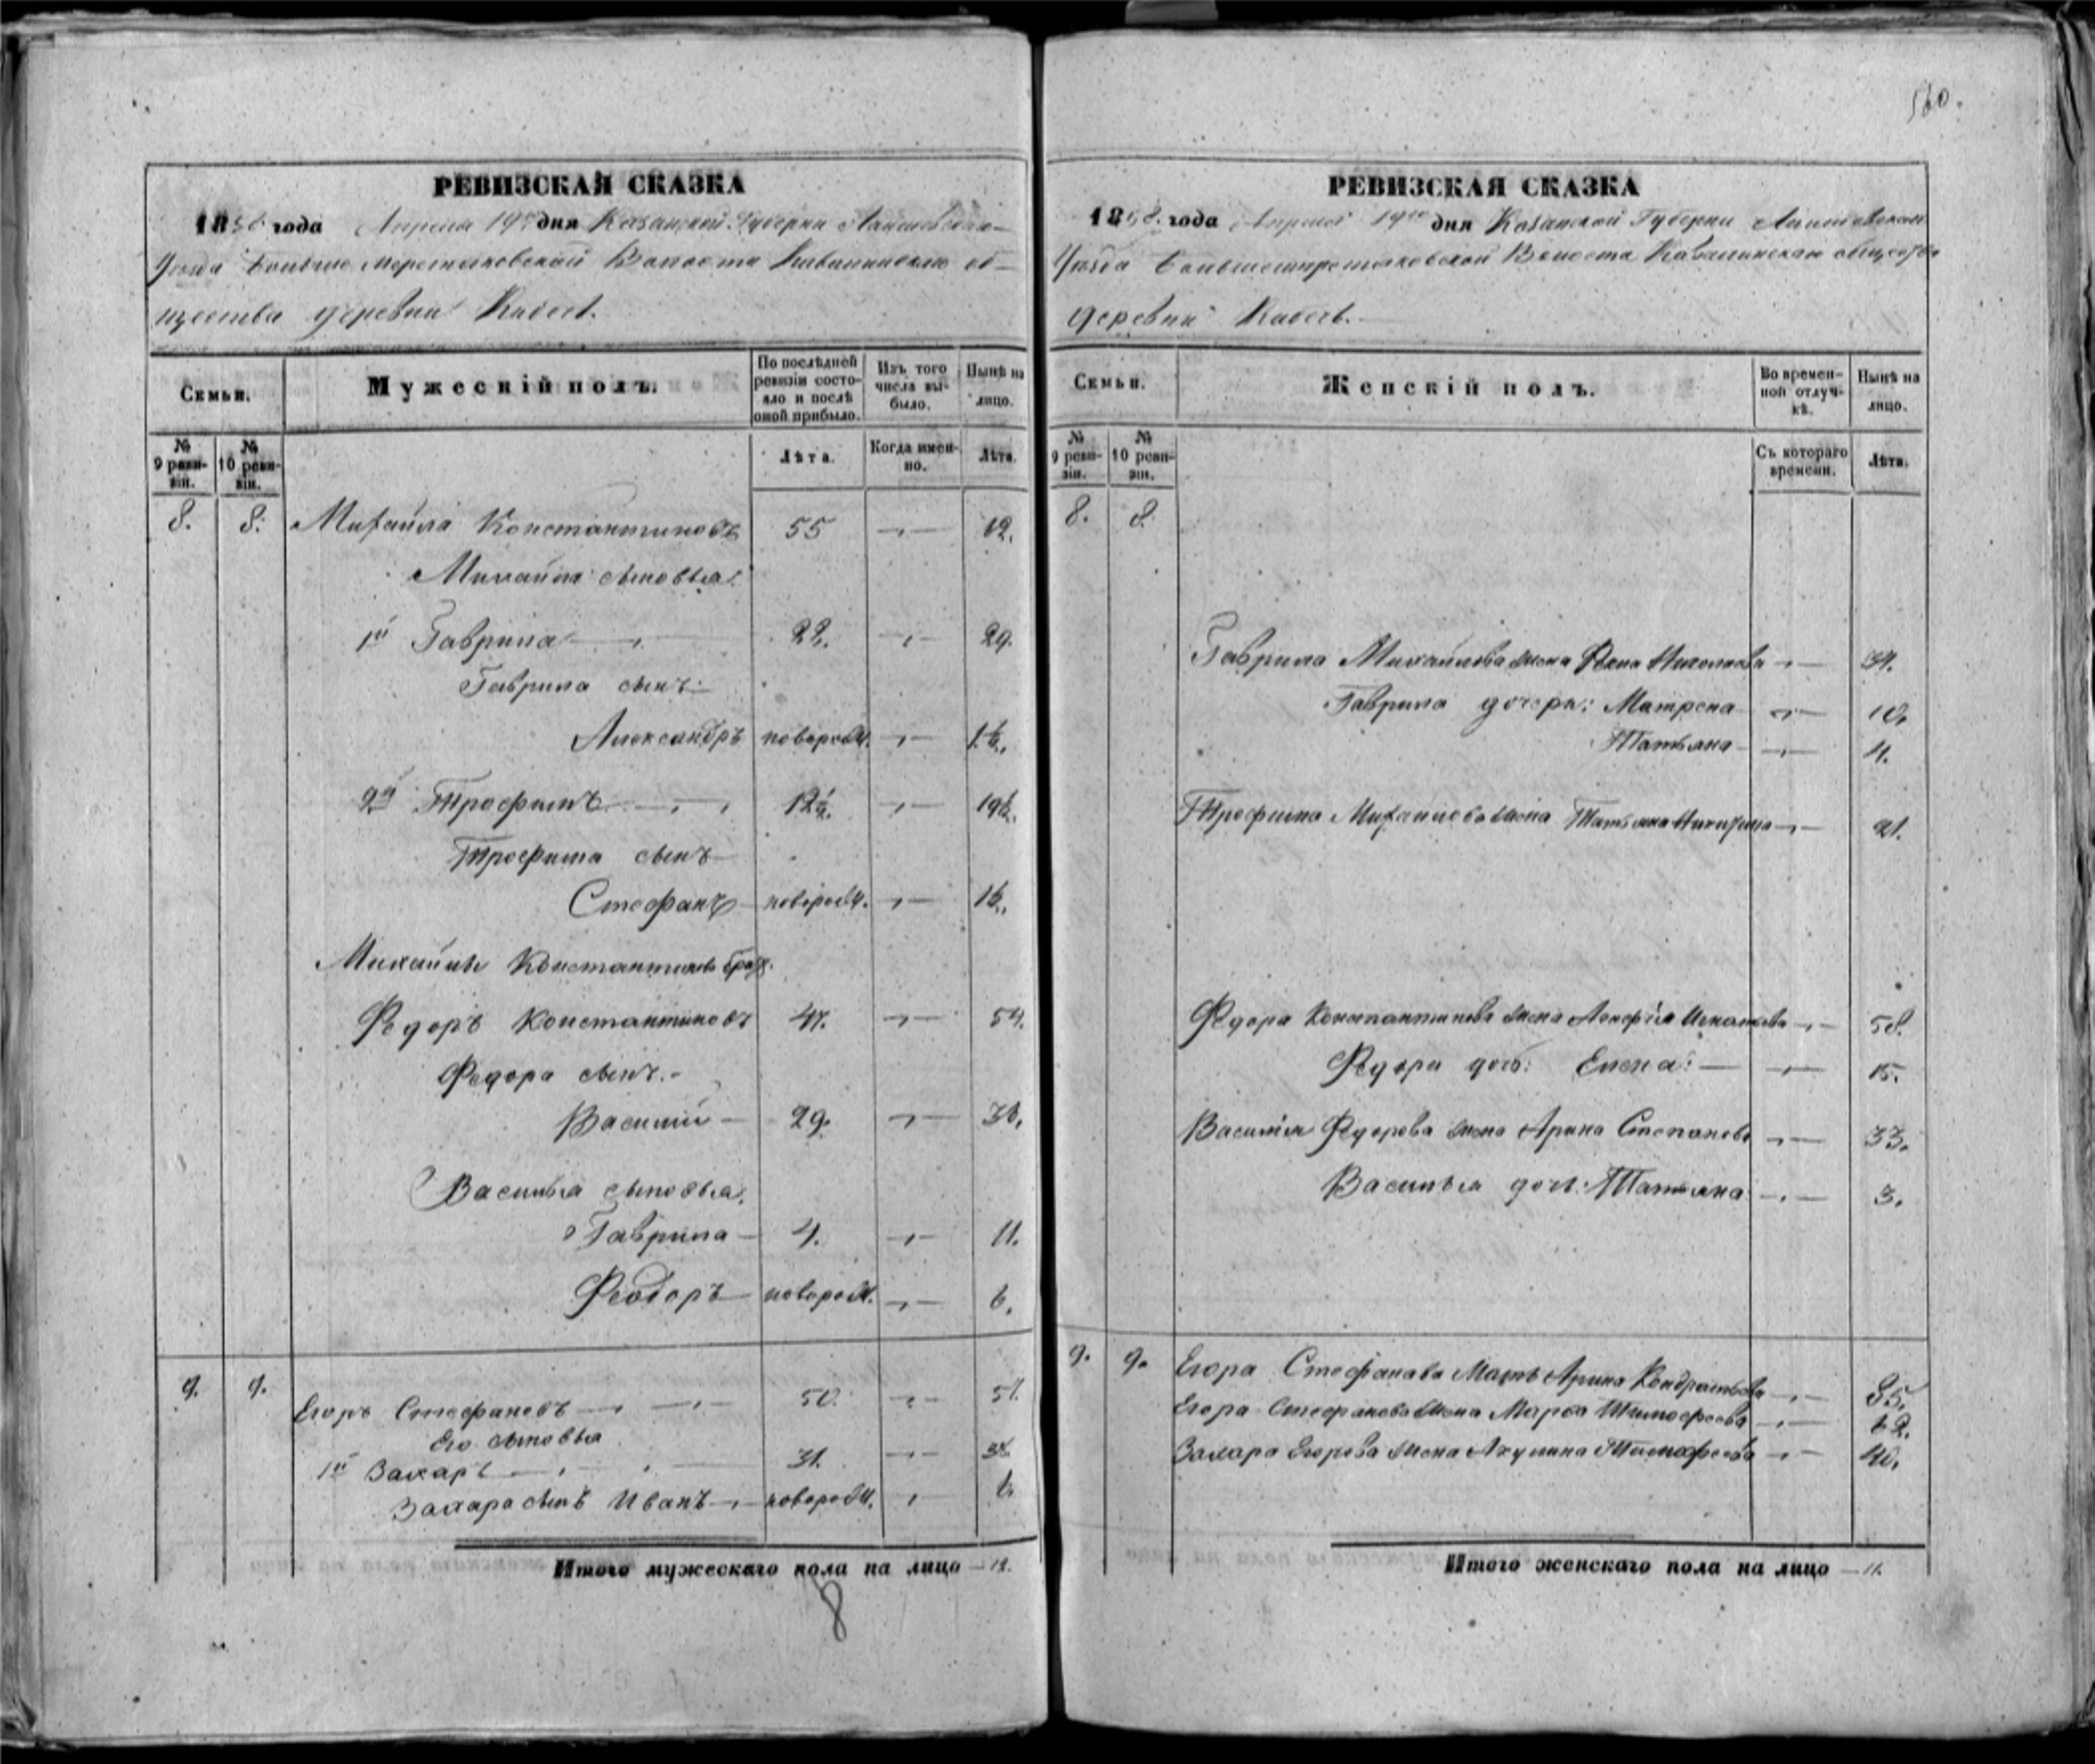 560.
РЕВИЗСКАЯ СКАЗКА
1858 года Апреля 19го дня Казанской Губерніи Лаишевскаго
Уѣзда Волости Кавалинскаго об-
щества деревни Кабесъ.
Семьи.
Мужескій полъ.
По послѣдней ревизіи состо-
яло и послѣ оной прибыло.
Изъ того числа вы-
было.
Нынѣ на лицо.
№ 9 реви-
зіи.
№ 10 реви-
зіи.
Лѣта.
Когда имен-
но.
Лѣта.
8. 8. Михайла Константиновъ 55
Михайла сыновья:
1й Гаврила 22. 29.
Гаврила сынъ:
Александръ новорожд. 1½.
2й Трофимъ 12½. 19½.
Трофима сынъ
Стефанъ новорожд. 1½.
Михайлы Константинова братъ.
Федоръ Константиновъ 47. 54.
Федора сынъ.
Василій 29. 36.
Василья сыновья.
Гаврила 4. 11.
Феодоръ новорожд. 6.
9. 9. Егоръ Стефановъ 50. 57.
Его сыновья
1й Захаръ 31. 38.
Захара сынъ Иванъ новорожд. 6.
Итого мужескаго пола на лицо — 12.
8
РЕВИЗСКАЯ СКАЗКА
1858. года Апреля 19го дня Казанской Губерніи Лаишевскаго
Уѣзда Волости Кавалинскаго общества
деревни Кабесъ.
Семьи.
Женскій полъ.
Во времен-
ной отлуч-
кѣ.
Нынѣ на лицо.
№ 9 реви-
зіи.
№ 10 реви-
зіи.
Съ котораго времени.
Лѣта.
8. 8.
Гаврила Михайлова жена Николаева 34.
Гаврила дочери: Матрена 10.
Татьяна 4.
Трофима Михайлова жена Татьяна 21.
Федора Константинова жена Игнатьева 58.
Федора дочь: Елена: 15.
Василія Федорова жена Арина Степанова 33.
Василья дочь: Татьяна 3.
9. 9. Егора Стефанова Мать Арина Кондратьева 85.
Егора Стефанова жена Марѳа Тимофеева 62.
Захара Егорова жена Акулина Тимофеева 40.
Итого женскаго пола на лицо — 11.